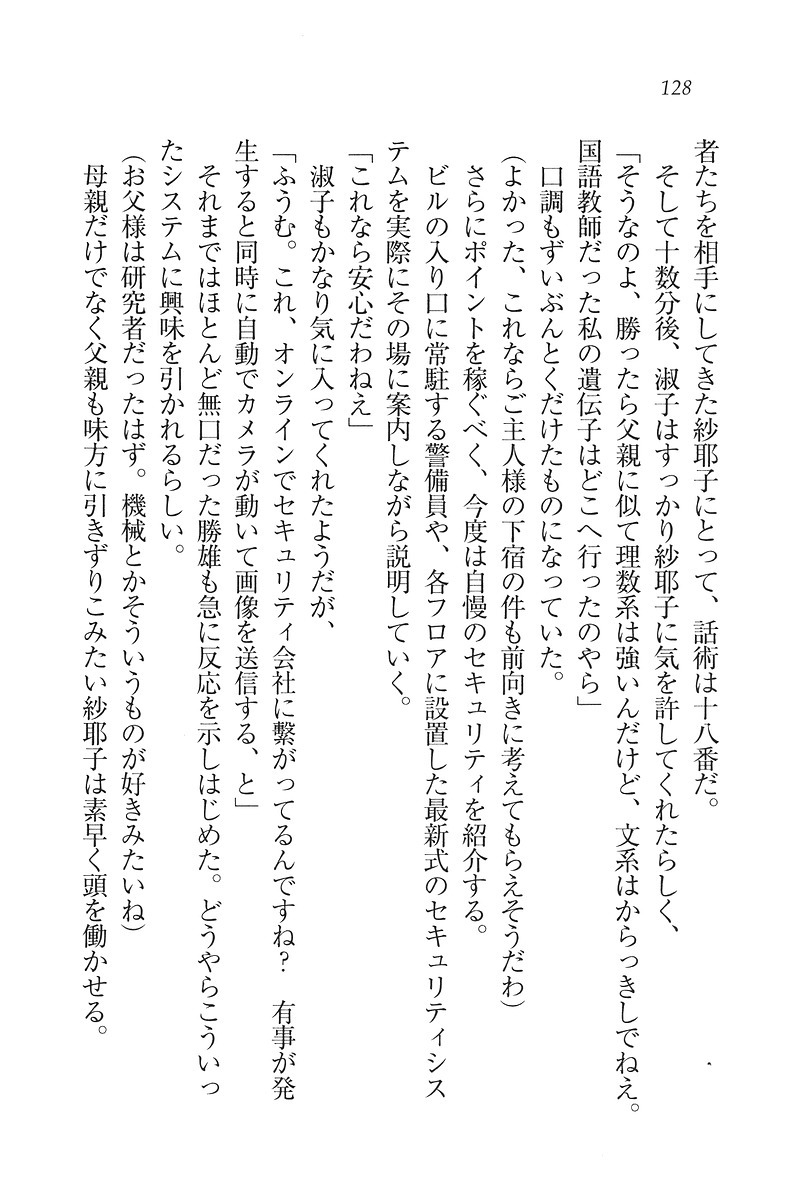 128
者たちを相手にしてきた紗耶子にとって、話術は十八番だ。
　そして十数分後、淑子はすっかり紗耶子に気を許してくれたらしく、
「そうなのよ、勝ったら父親に似て理数系は強いんだけど、文系はからっきしでねえ。
国語教師だった私の遺伝子はどこへ行ったのやら」
　口調もずいぶんとくだけたものになっていた。
（よかった、これならご主人様の下宿の件も前向きに考えてもらえそうだわ）
　さらにポイントを稼ぐべく、今度は自慢のセキュリティを紹介する。
　ビルの入り口に常駐する警備員や、各フロアに設置した最新式のセキュリティシス
テムを実際にその場に案内しながら説明していく。
「これなら安心だわねえ」
　淑子もかなり気に入ってくれたようだが、
「ふうむ。これ、オンラインでセキュリティ会社に繋がってるんですね？　有事が発
生すると同時に自動でカメラが動いて画像を送信する、と」
　それまではほとんど無口だった勝雄も急に反応を示しはじめた。どうやらこういっ
たシステムに興味を引かれるらしい。
（お父様は研究者だったはず。機械とかそういうものが好きみたいね）
　母親だけでなく父親も味方に引きずりこみたい紗耶子は素早く頭を働かせる。